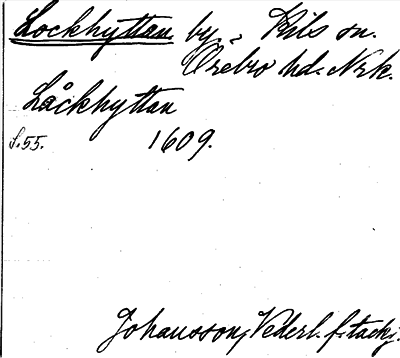 Lockhyttan by, Kils sn.
Örebro hd. Nrk.
Låckhyttan
s. 55. 1609.
Johansson, Vederl. f. tackj.